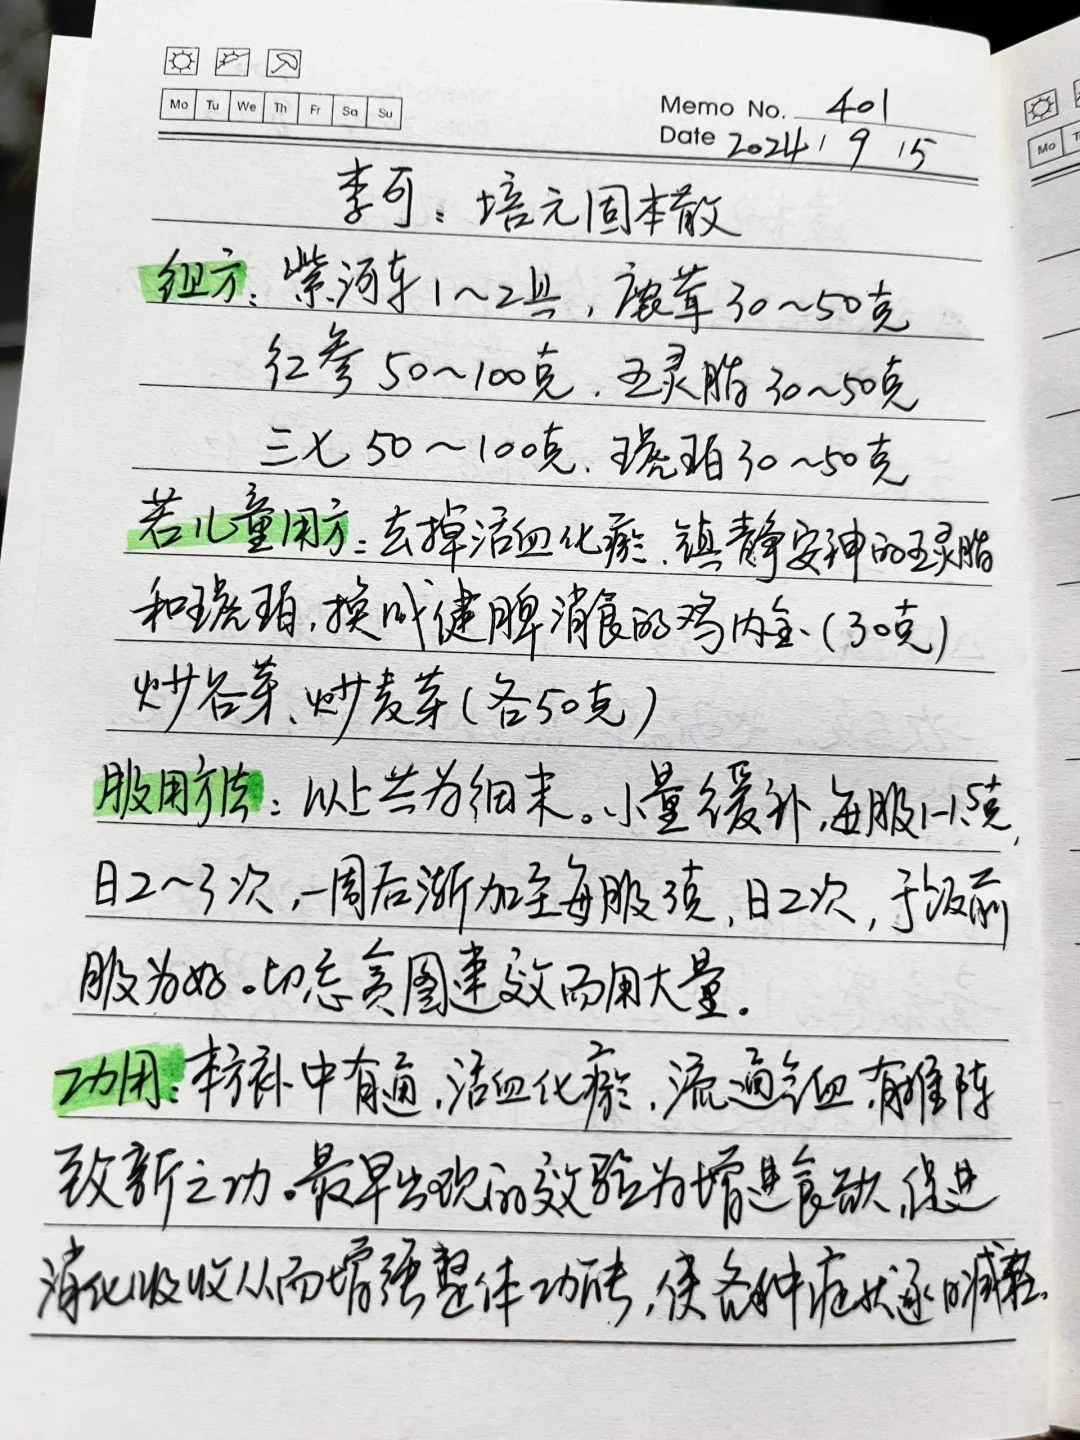 Mo Tu We Th Fr Sa Su
Memo No. 401
Date 2024 / 9 / 15
李可：培元固本散
组方：紫河车1～2具，鹿茸30～50克
红参50～100克．五灵脂30～50克
三七50～100克．琥珀30～50克
若儿童用方：去掉活血化瘀、镇静安神的五灵脂
和琥珀，换成健脾消食的鸡内金（30克）
炒谷芽、炒麦芽（各50克）
服用方法：以上共为细末。小量缓补，每服1-1.5克，
日2～3次，一周后渐加至每服3克，日2次，于饭前
服为好。切忌贪图速效而用大量。
功用：本方补中有通，活血化瘀，流通气血，有推陈
致新之功。最早出现的效验为增进食欲，促进
消化吸收从而增强整体功能，使各种症状逐日减轻。
Mo